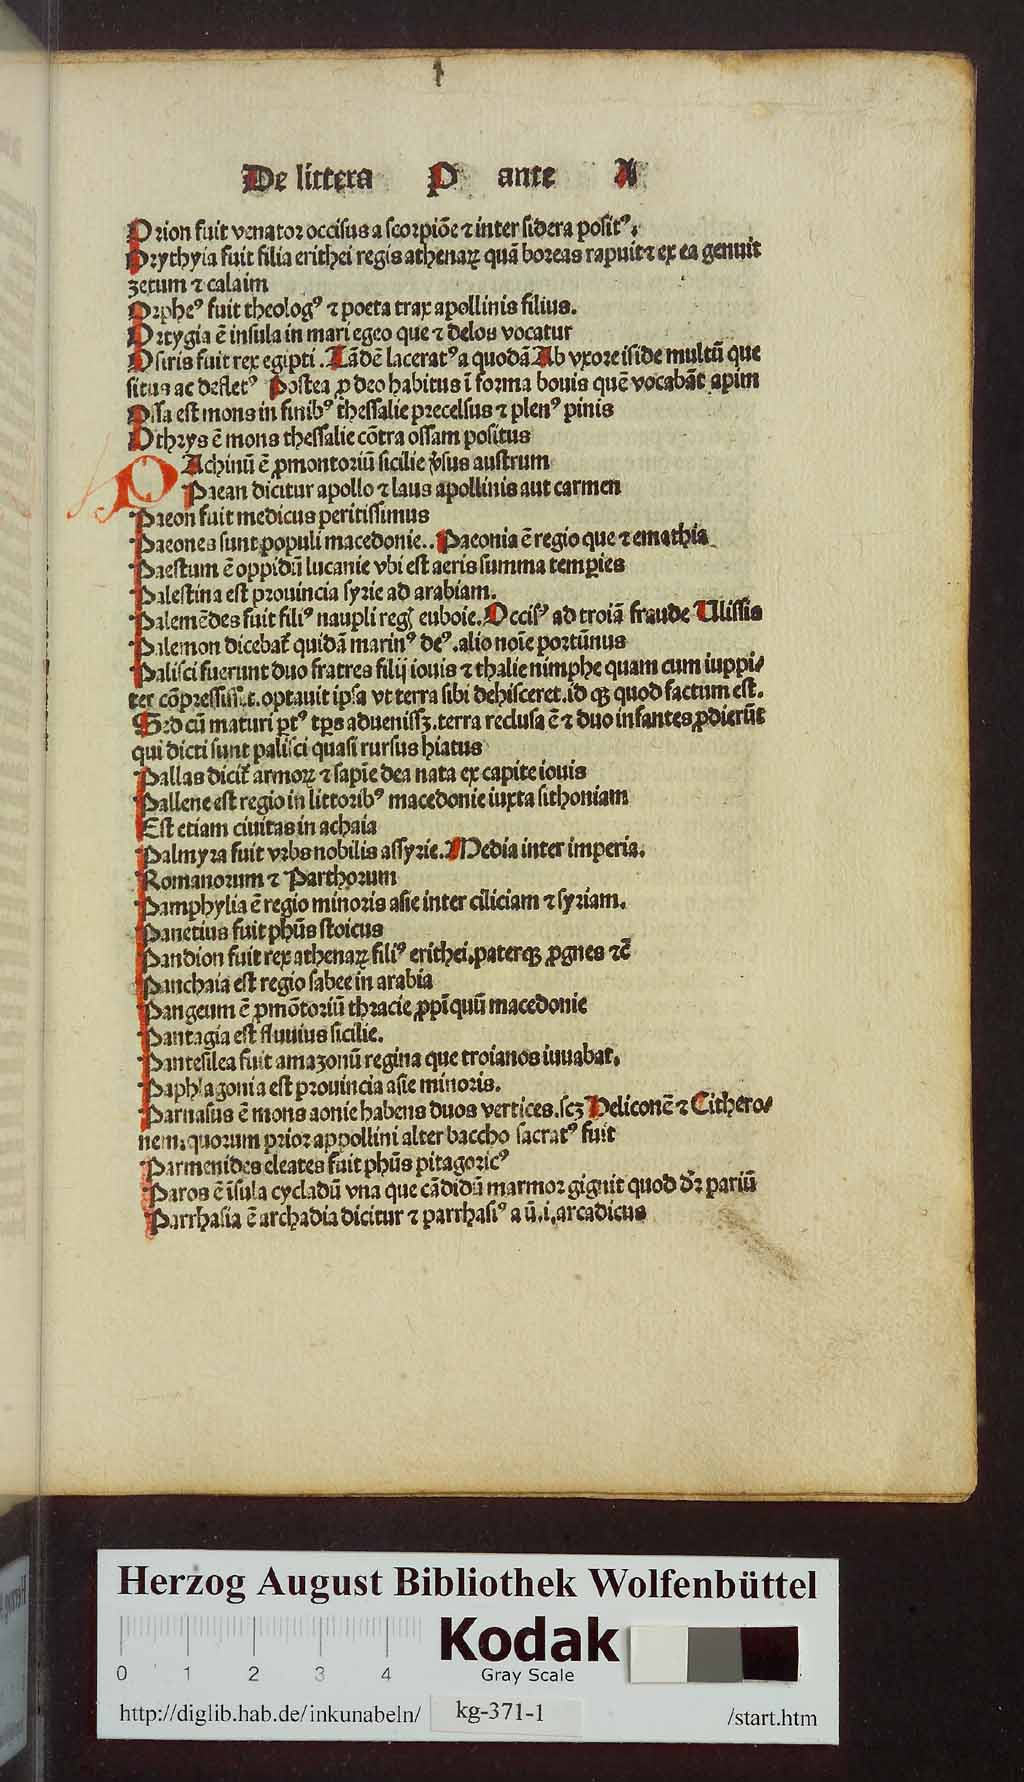 De littera P ante A
Orion fuit venator occisus a scorpiōe ⁊ inter sidera positꝰ.
Orythyia fuit filia erithei regis athenaꝝ quā boreas rapuit ⁊ ex ea genuit
zetum ⁊ calaim
Orpheꝰ fuit theologꝰ ⁊ poeta trax apollinis filius.
Ortygia ē insula in mari egeo que ⁊ delos vocatur
Osiris fuit rex egipti. Tādē laceratꝰ a quodā Ab vxore iside multū que
situs ac defletꝰ Postea ꝓ deo habitus ī forma bouis quē vocabāt apim
Ossa est mons in finibꝰ thessalie precelsus ⁊ plenꝰ pinis
Othrys ē mons thessalie cōtra ossam positus
PAchinū ē ꝓmontoriū sicilie v̓sus austrum
Paean dicitur apollo ⁊ laus apollinis aut carmen
Paeon fuit medicus peritissimus
Paeones sunt populi macedonie.. Paeonia ē regio que ⁊ emathia
Paestum ē oppidū lucanie vbi est aeris summa temꝑies
Palestina est prouincia syrie ad arabiam.
Palemēdes fuit filiꝰ naupli regꝭ euboie. Occisꝰ ad troiā fraude Ulissis
Palemon dicebat᷑ quidā marinꝰ deꝰ. alio noīe portūnus
Palisci fuerunt duo fratres filij iouis ⁊ thalie nimphe quam cum iuppi⸗
ter cōpressisset. optauit ipsa vt terra sibi dehisceret. id qꝫ quod factum est.
Sed cū maturi ꝑtꝰ tꝑs aduenissꝫ. terra reclusa ē ⁊ duo infantes ꝓdierūt
qui dicti sunt palisci quasi rursus hiatus
Pallas dicit᷑ armoꝝ ⁊ sapīe dea nata ex capite iouis
Pallene est regio in littoribꝰ macedonie iuxta sithoniam
Est etiam ciuitas in achaia
Palmyra fuit vrbs nobilis assyrie. Media inter imperia.
Romanorum ⁊ Parthorum
Pamphylia ē regio minoris asie inter ciliciam ⁊ syriam.
Panetius fuit phūs stoicus
Pandion fuit rex athenaꝝ filiꝰ erithei. paterqꝫ ꝓgnes ⁊c̄
Panchaia est regio sabee in arabia
Pangeum ē ꝓmōtoriū thracie ꝓpīquū macedonie
Pantagia est fluuius sicilie.
Pantesilea fuit amazonū regina que troianos iuuabat.
Paphlagonia est prouincia asie minoris.
Parnasus ē mons aonie habens duos vertices. scꝫ Heliconē ⁊ Cithero⸗
nem. quorum prior appollini alter baccho sacratꝰ fuit
Parmenides eleates fuit phūs pitagoricꝰ
Paros ē īsula cycladū vna que cādidū marmor gignit quod dr̄ pariū
Parrhasia ē archadia dicitur ⁊ parrhasiꝰ a ū. i. arcadicus
Herzog August Bibliothek Wolfenbüttel
0 1 2 3 4
Kodak
Gray Scale
http://diglib.hab.de/inkunabeln/ kg-371-1 /start.htm